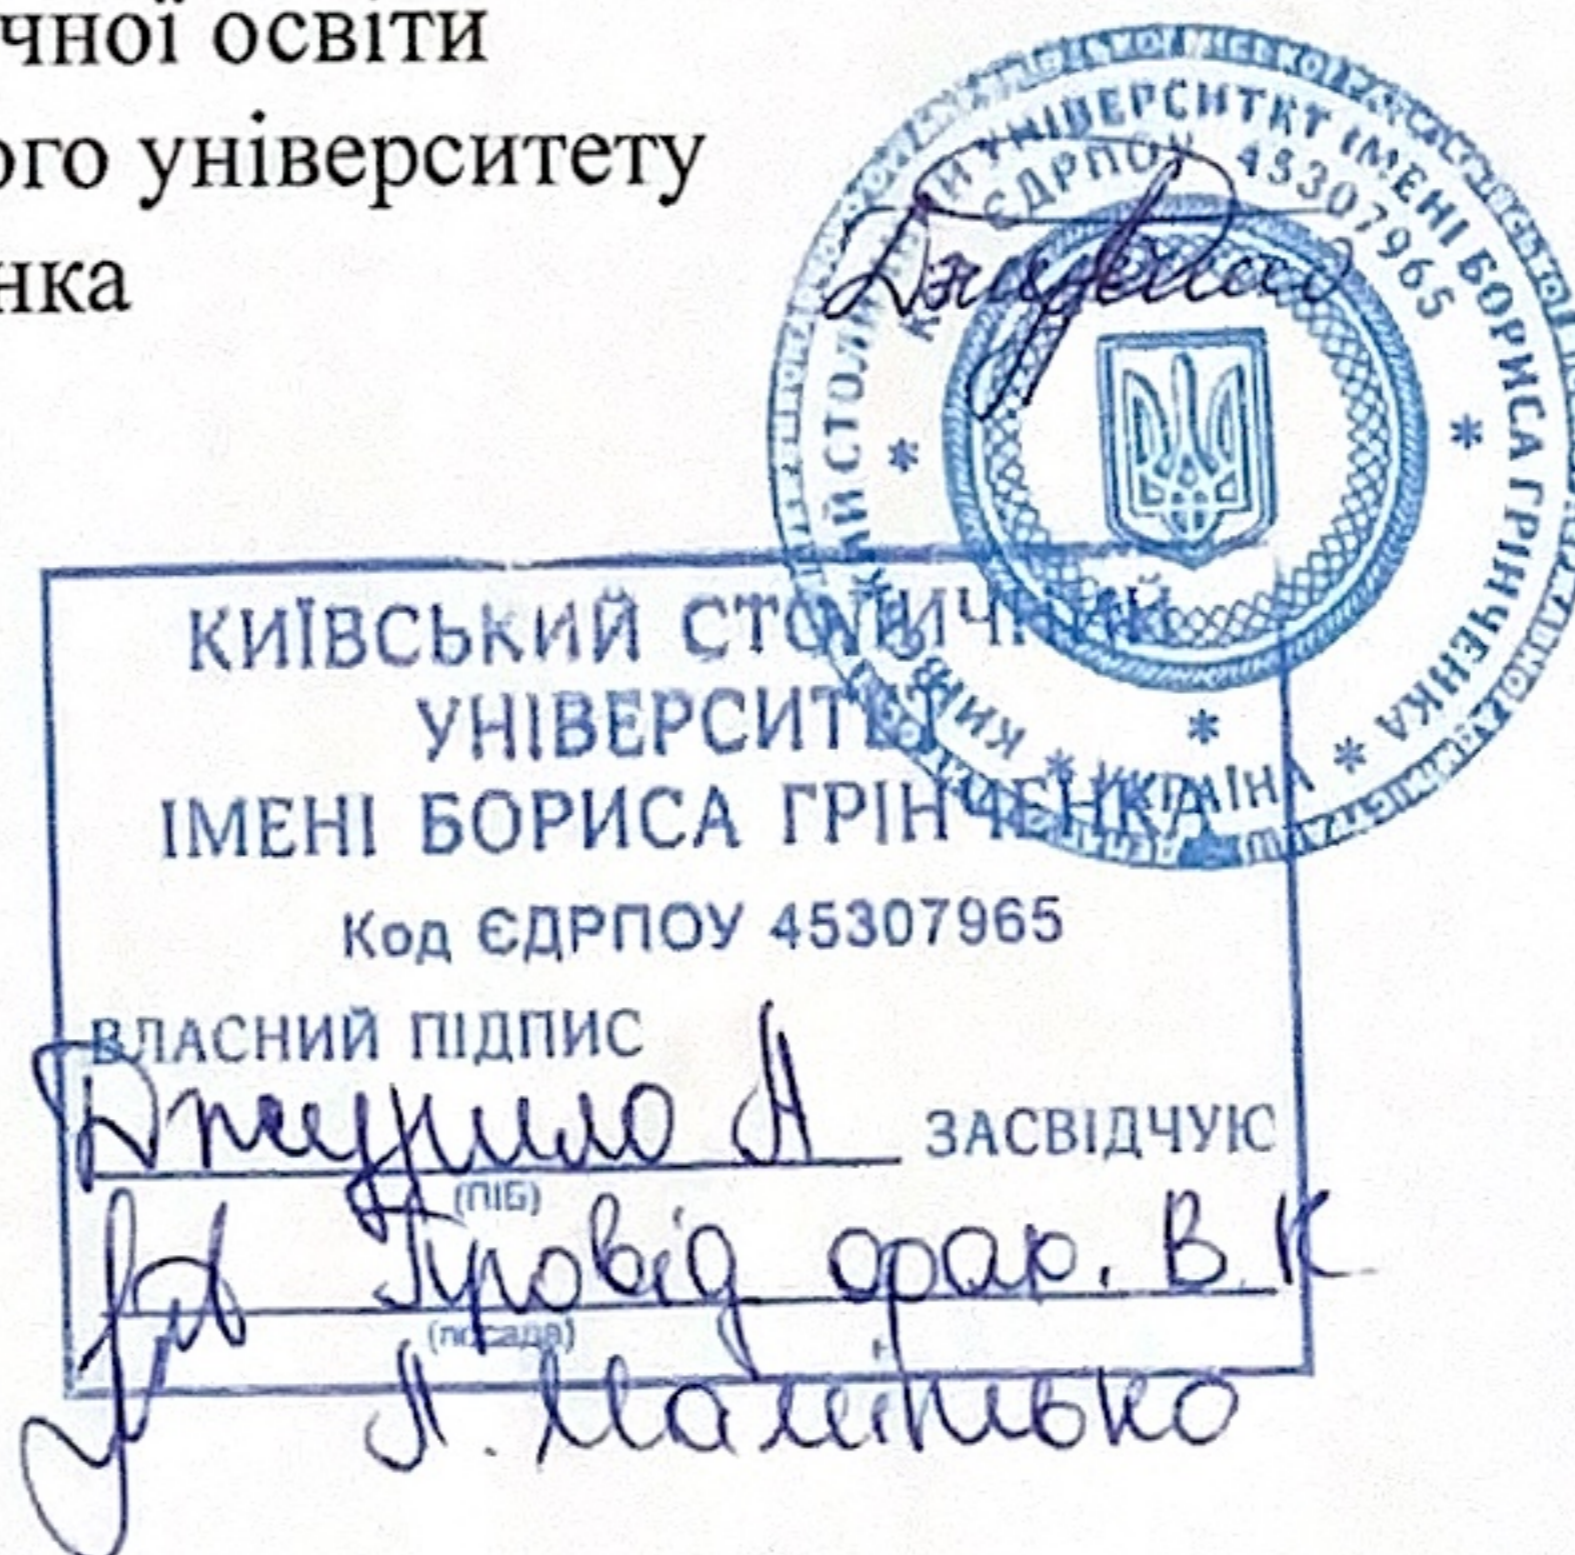 чної освіти
ого університету
нка
УНІВЕРСИТЕТ ІМЕНІ БОРИСА ГРІНЧЕНКА * УКРАЇНА *
ЄДРПОУ 45307965
КИЇВСЬКИЙ СТОЛИЧНИЙ
УНІВЕРСИТЕТ
ІМЕНІ БОРИСА ГРІНЧЕНКА
Код ЄДРПОУ 45307965
ВЛАСНИЙ ПІДПИС
Джурило А ЗАСВІДЧУЮ
(ПІБ)
Провід фах. В.К
(посада)